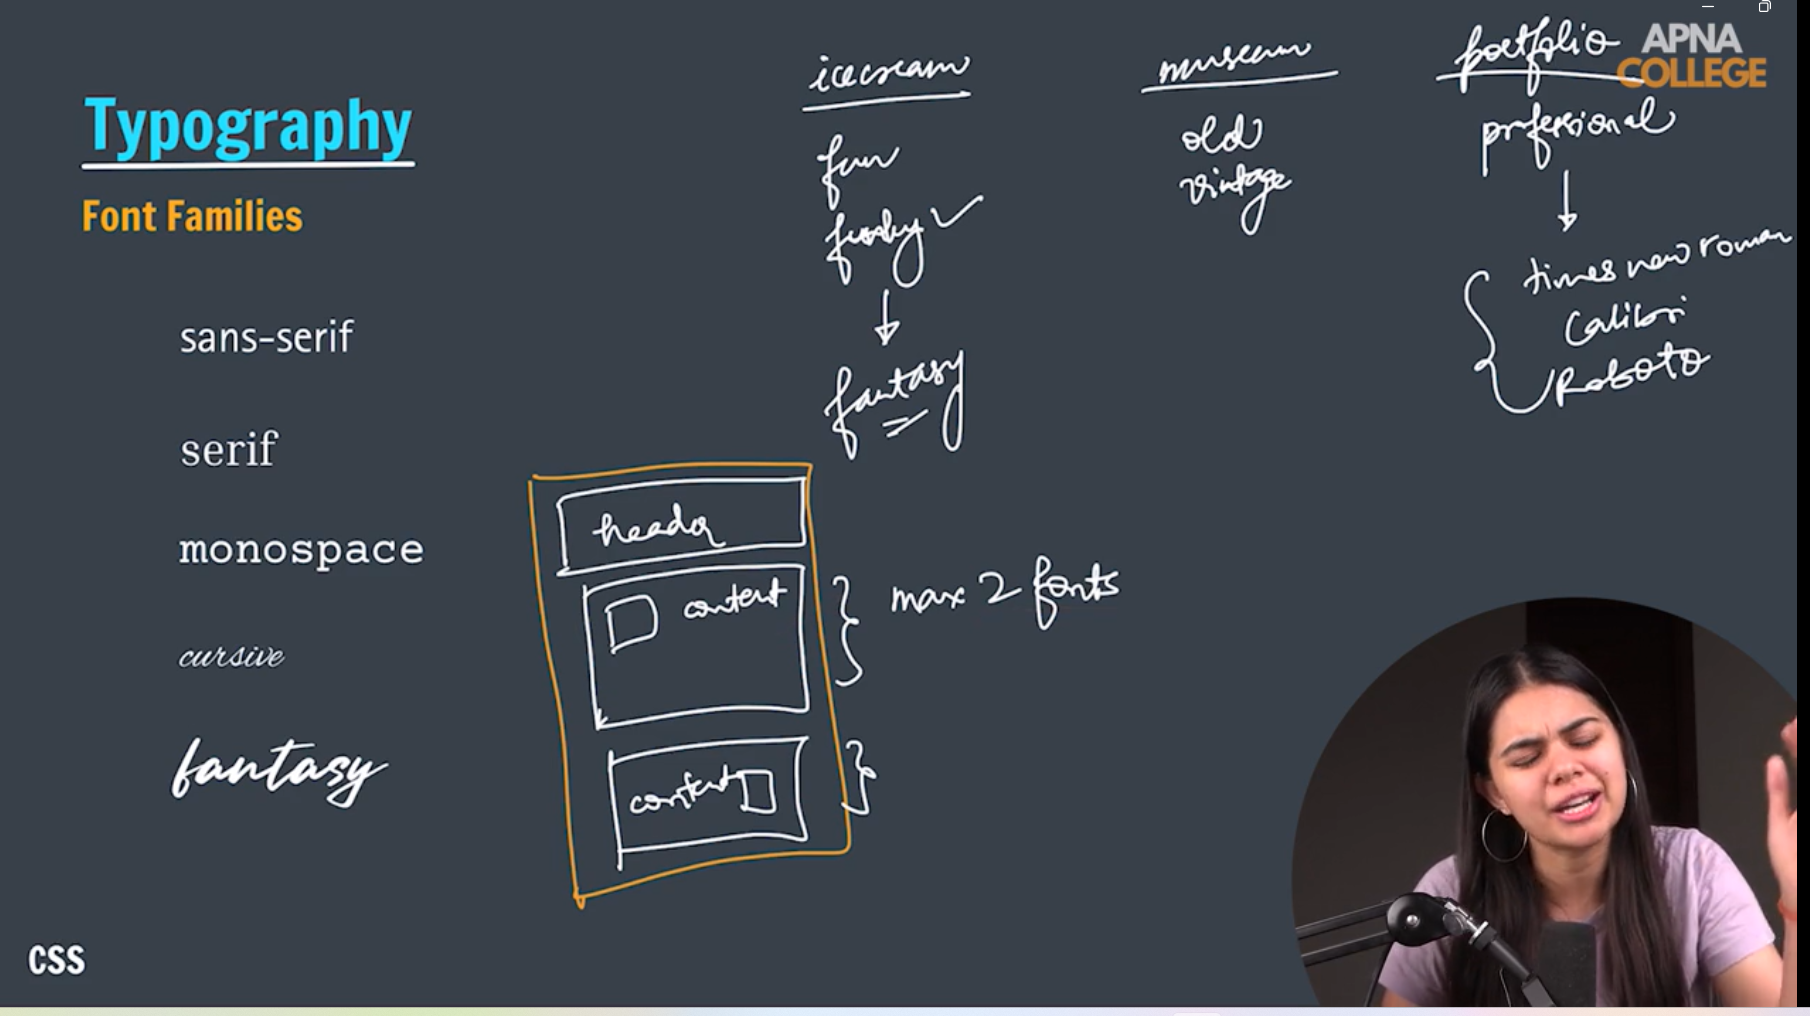 Typography
Font Families
sans-serif
serif
monospace
cursive
fantasy
CSS
icecream
fun
funky ✓
↓
fantasy
museum
old
vintage
portfolio
professional
↓
times new roman
Calibri
Roboto
header
content
max 2 fonts
content
APNA
COLLEGE